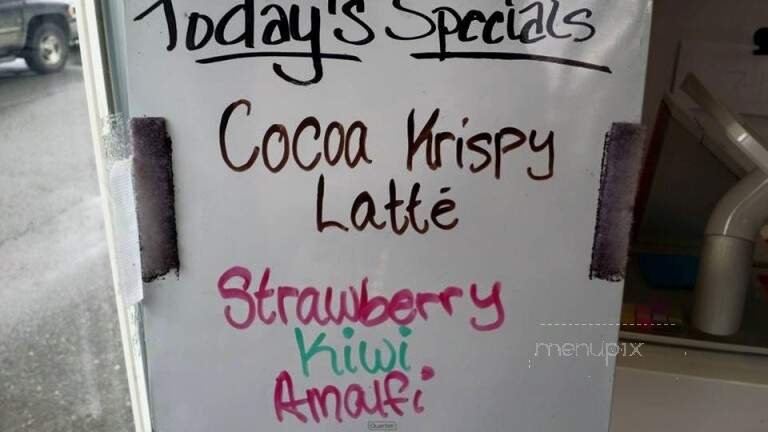 Today's Specials
Cocoa Krispy
Latté
Strawberry
Kiwi
Amalfi
menupix
Quartet